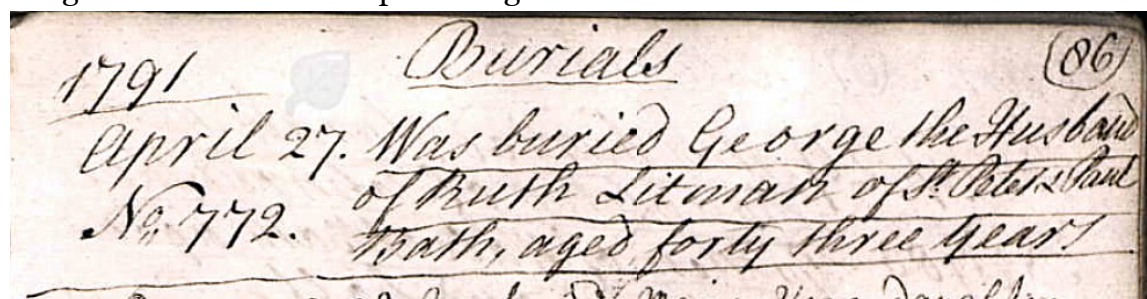 Burials
(86)
1791
April 27. Was buried George the Husband
of Ruth Litman of St. Peter & Paul
No. 772.
Bath, aged forty three years